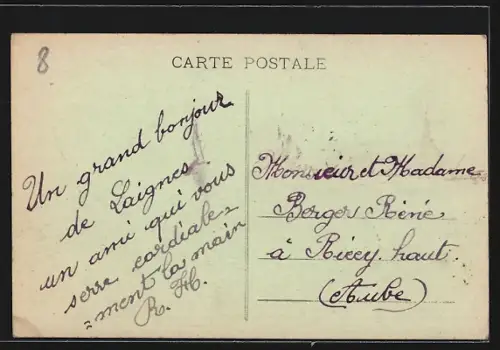 8
CARTE POSTALE
Un grand bonjour
de Laignes.
un ami qui vous
serre cordiale=
=ment la main
R. H.
Monsieur et Madame
Berger Réné
à Ricey. haut.
(Aube)